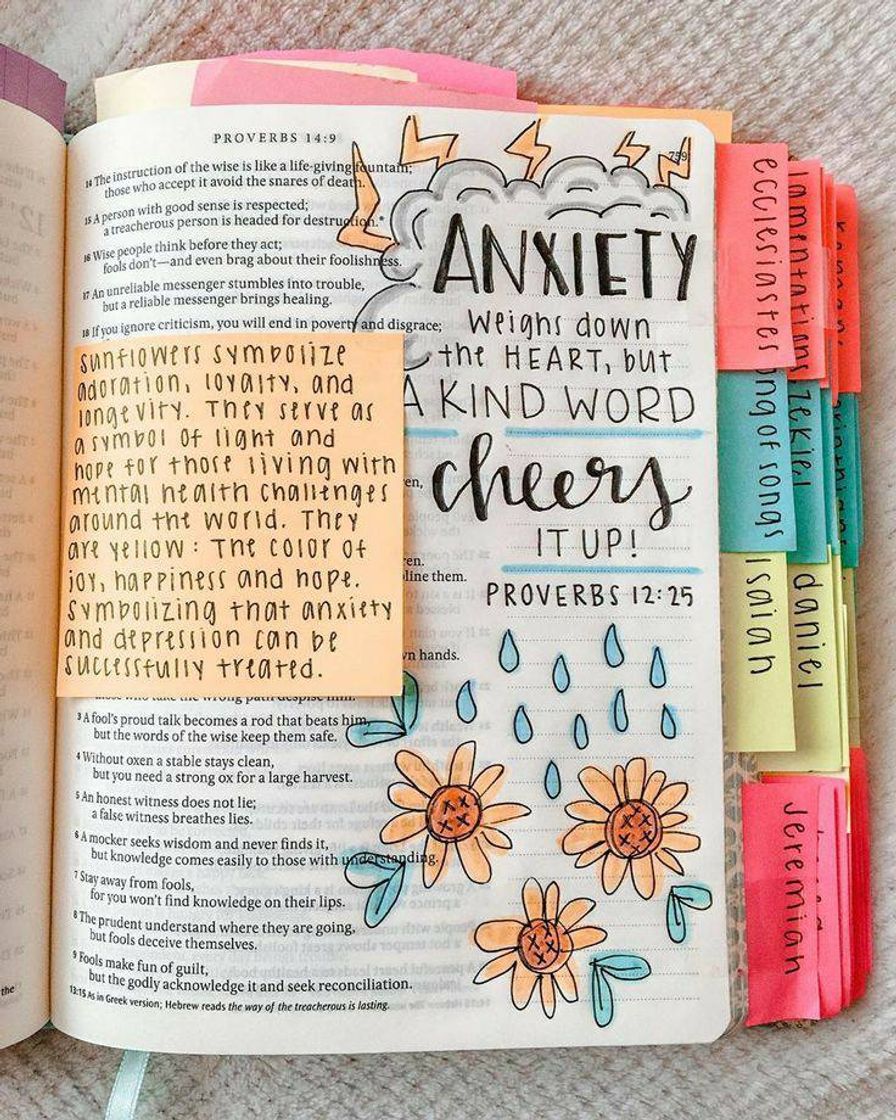 PROVERBS 14:9
759
14 The instruction of the wise is like a life-giving fountain;
those who accept it avoid the snares of death.
15 A person with good sense is respected;
a treacherous person is headed for destruction.*
16 Wise people think before they act;
fools don't—and even brag about their foolishness.
17 An unreliable messenger stumbles into trouble,
but a reliable messenger brings healing.
18 If you ignore criticism, you will end in poverty and disgrace;
sunflowers symbolize
adoration, loyalty, and
longevity. They serve as
a symbol of light and
hope for those living with
mental health challenges
around the world. They
are yellow: The color of
joy, happiness and hope.
Symbolizing that anxiety
and depression can be
successfully treated.
line them.
hands.
3 A fool's proud talk becomes a rod that beats him,
but the words of the wise keep them safe.
4 Without oxen a stable stays clean,
but you need a strong ox for a large harvest.
5 An honest witness does not lie;
a false witness breathes lies.
6 A mocker seeks wisdom and never finds it,
but knowledge comes easily to those with understanding.
7 Stay away from fools,
for you won't find knowledge on their lips.
8 The prudent understand where they are going,
but fools deceive themselves.
9 Fools make fun of guilt,
but the godly acknowledge it and seek reconciliation.
13:15 As in Greek version; Hebrew reads the way of the treacherous is lasting.
ANXIETY
weighs down
the HEART, but
A KIND WORD
cheers
IT UP!
PROVERBS 12:25
ecclesiastes
song of songs
isaiah
jeremiah
lamentations
ezekiel
daniel
the